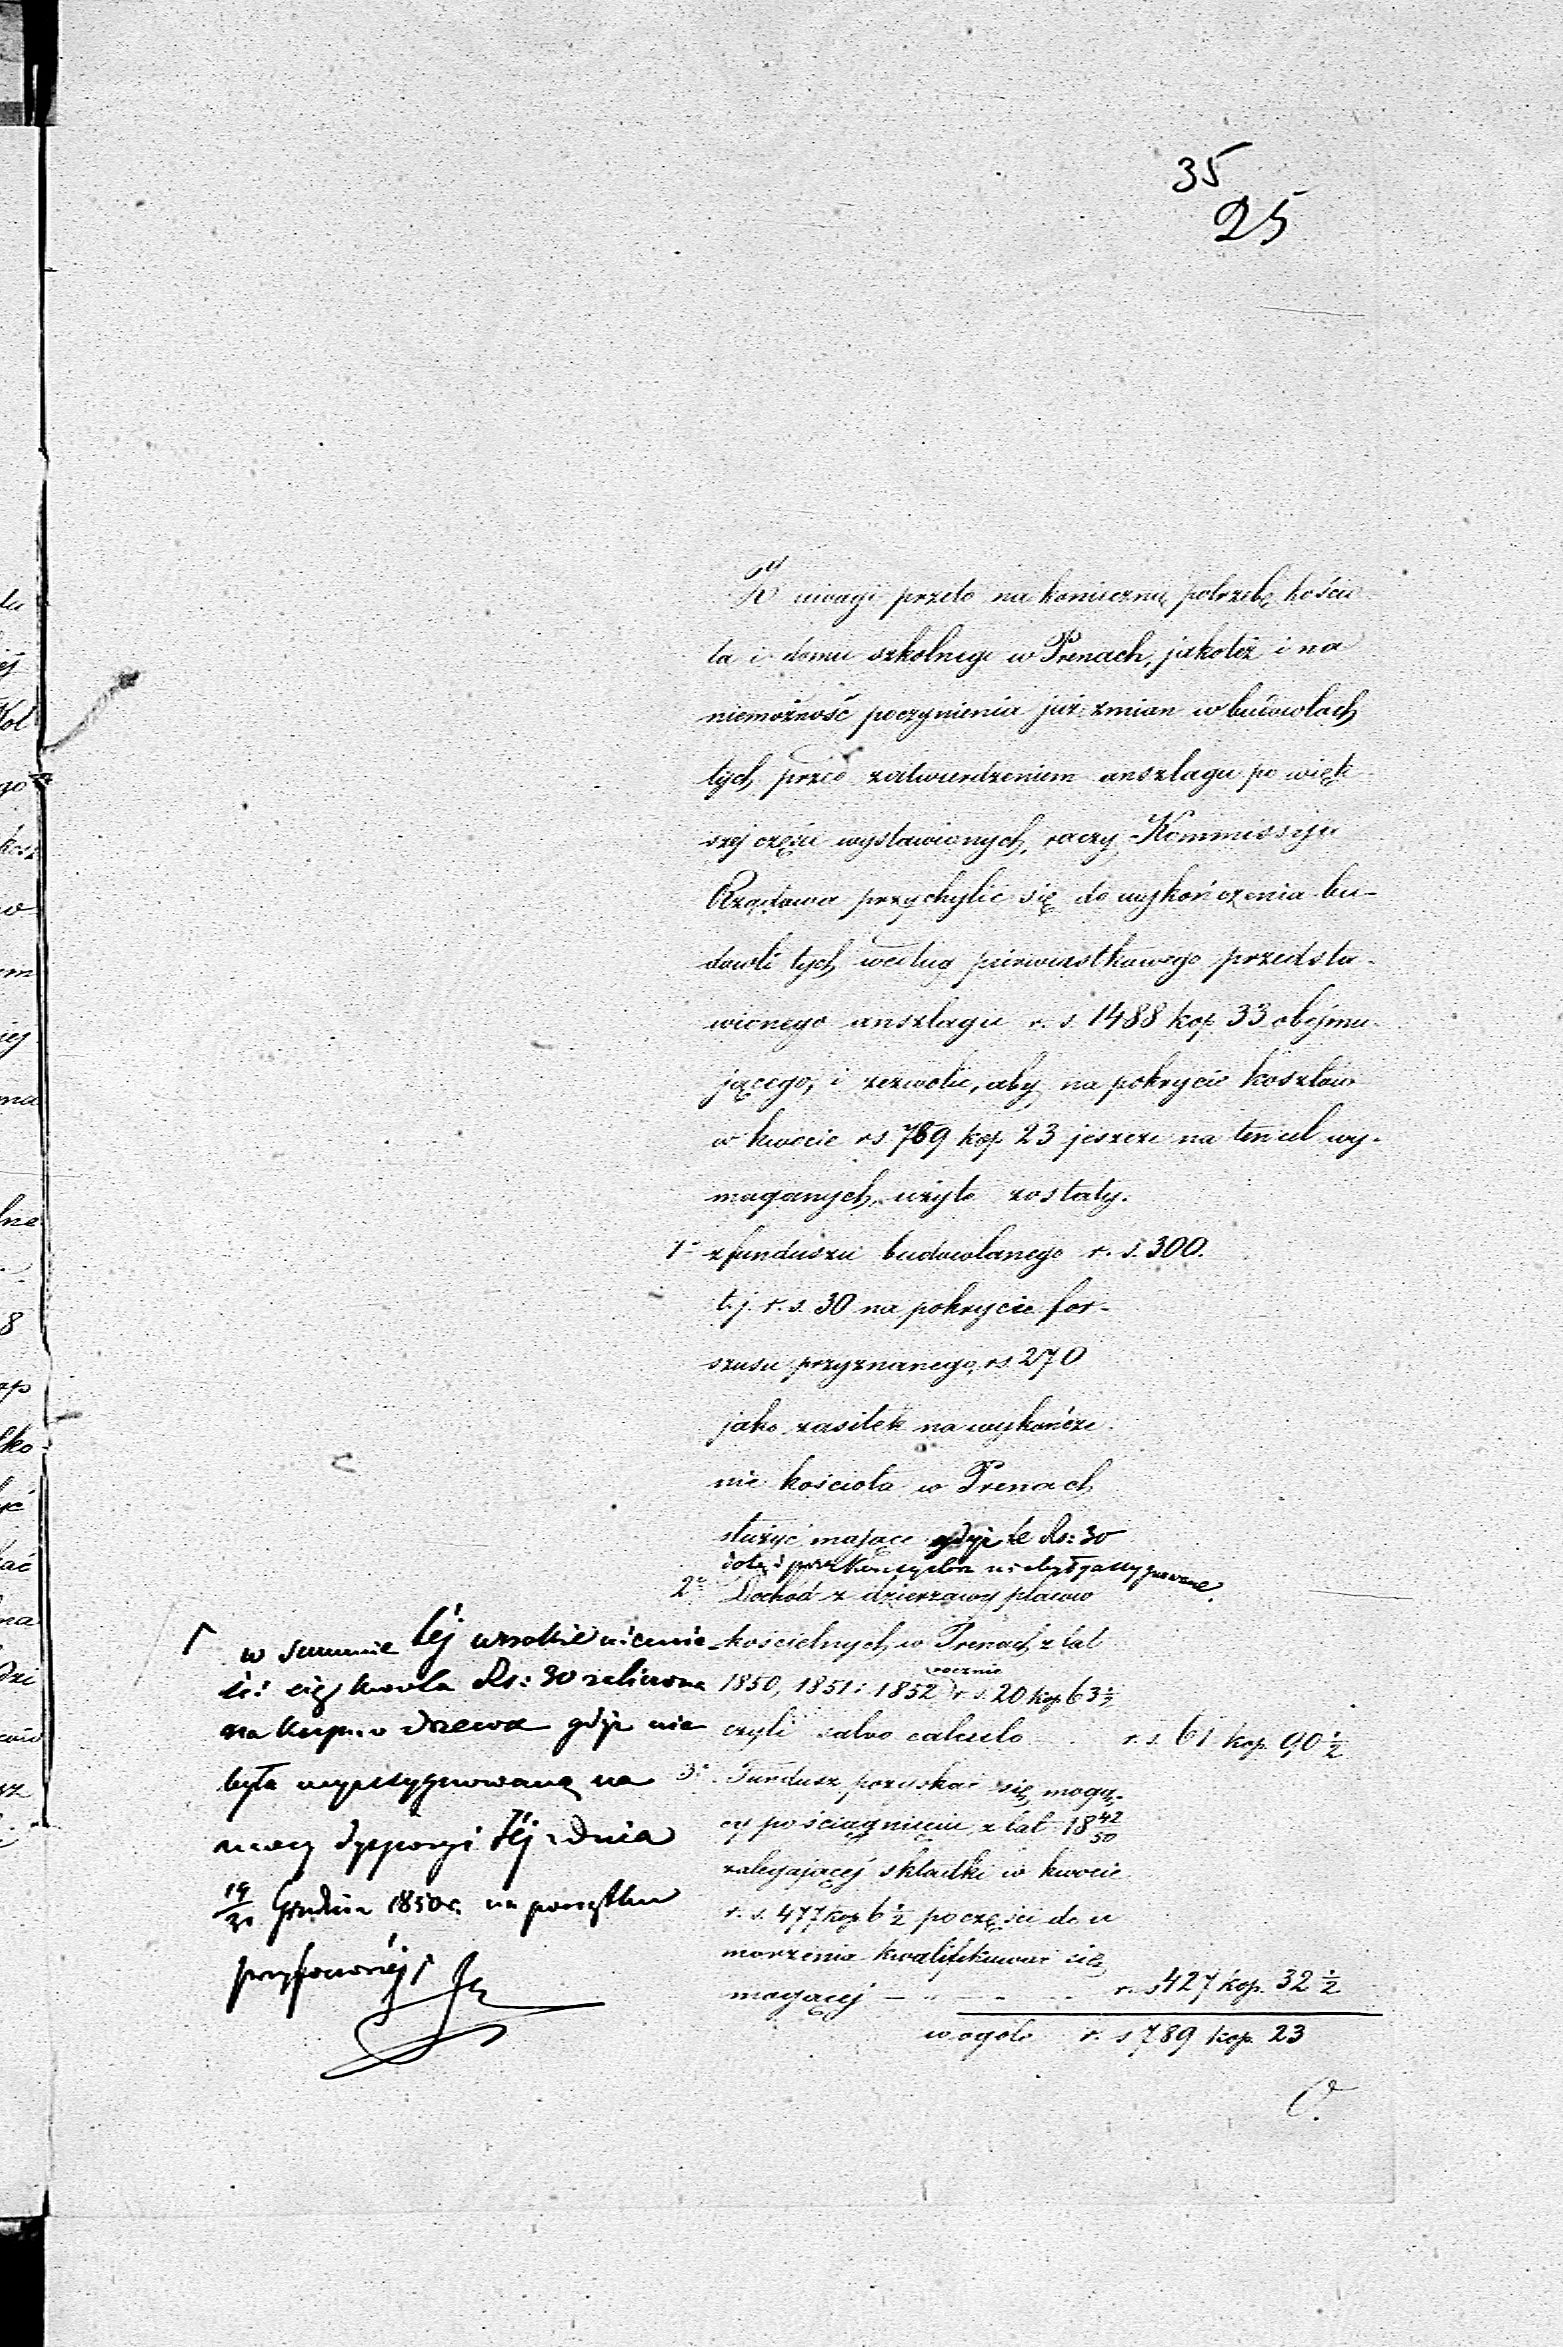 35
25
Z uwagi przeto na konieczną potrzebę kościo
ła i domu szkolnego w Prenach, jakoteż i na
niemożność poczynienia już zmian w budowlach
tych, przed zatwierdzeniem anszlagu po więk-
szej części wystawionych, raczy Kommissyja
Rządowa przychylić się do wykończenia bu-
dowli tych według pierwiastkowego przedsta-
wionego anszlagu r. s. 1488 kop 33 obejmu-
jącego, i zezwolić, aby na pokrycie kosztów
w kwocie rs 789 kop 23 jeszcze na ten cel wy-
maganych, użyte zostały.
1° z funduszu budowlanego r. s. 300.
t. j. r. s. 30 na pokrycie for-
szusu przyznanego, rs 270
jako zasiłek na wykończe
nie kościoła w Prenach
służyć mające gdyż te Rs: 30
dotąd przez
2° Dochód z dzierżawy placów
kościelnych w Prenach z lat
1850, 1851 i 1852 rocznie r. s. 20 kop 63 ½
czyli salvo calculo r. s. 61 kop. 90 ½
3° Fundusz pozyskać się mogą-
cy po ściągnięciu z lat 18 42/50
zalegającej składki w kwocie
r. s. 477 kop 6 ½ po części do u
morzenia kwalifikować się
mogącej — r. s 427 kop. 32 ½
w ogóle r. s 789 kop. 23
w summie téj
się kwota Rs: 30
na kupno drzewa gdyż nie
była wyassygnowaną na
mocy dyspozycji Téj z dnia
19/31 Grudnia 1850 r. na początku